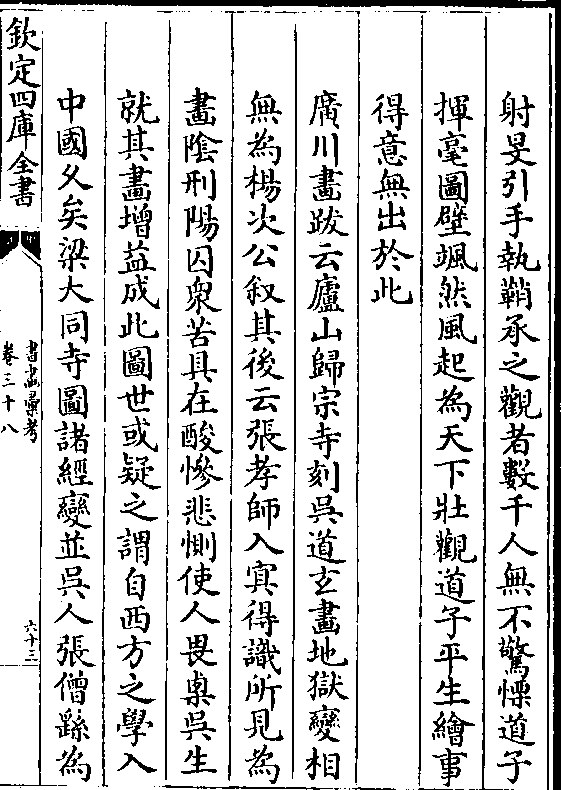 射旻引手執鞘承之觀者數千人無不驚慄道子
揮毫圖壁颯然風起為天下壯觀道子平生繪事
得意無出於此
廣川畫跋云廬山歸宗寺刻吳道玄畫地獄變相
無為楊次公叙其後云張孝師入冥得識所見為
畫陰刑陽囚衆苦具在酸慘悲惻使人畏罪吳生
就其畫增益成此圖世或疑之謂自西方之學入
中國久矣梁大同寺圖諸經變並吳人張僧繇為
欽定四庫全書
書畫彚考
卷三十八
六十三